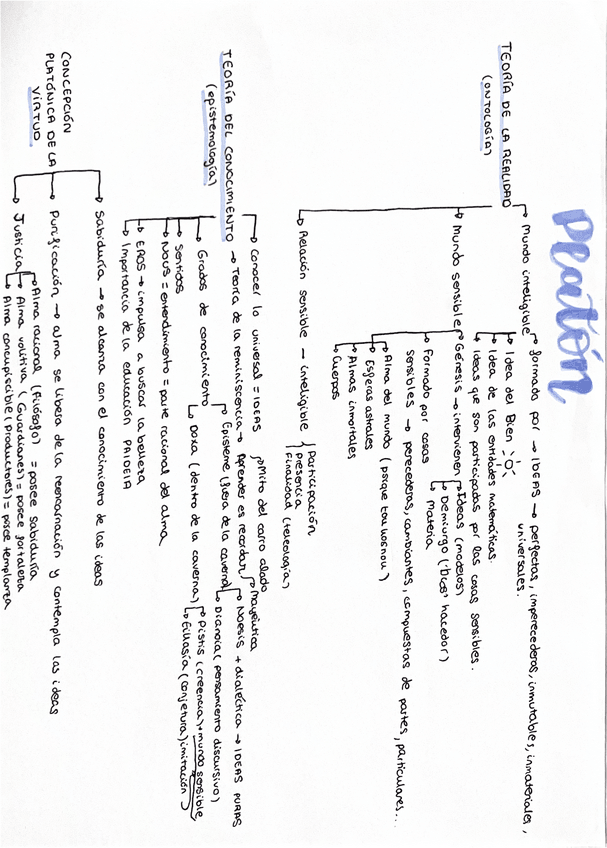 Platón
TEORÍA DE LA REALIDAD
(ONTOLOGÍA)
Mundo inteligible
formado por → IDEAS → perfectas, imperecederas, inmutables, inmateriales,
universales.
Idea del Bien
Idea de las entidades matemáticas.
Ideas que son participadas por las cosas sensibles.
Mundo sensible
Génesis → intervienen
Ideas (modelos)
Demiurgo ("Dios" hacedor)
Materia
Formado por cosas
sensibles → perecederas, cambiantes, compuestas de partes, particulares...
Alma del mundo (psique tou kosmou)
Esferas astrales
Almas inmortales
Cuerpos
Relación sensible - inteligible
Participación
Presencia
Finalidad (teleología)
TEORÍA DEL CONOCIMIENTO
(epistemología)
Conocer lo universal = IDEAS
Mito del carro alado
→ Teoría de la reminiscencia → Aprender es recordar
Mayéutica
Grados de conocimiento
Episteme (fuera de la caverna)
Noesis + dialéctica → IDEAS PURAS
Dianoia (pensamiento discursivo)
Doxa (dentro de la caverna)
Pistis (creencia) + mundo sensible
Eikasía (conjetura) imitación
Sentidos
NOUS = entendimiento = parte racional del alma
EROS → impulsa a buscar la belleza
Importancia de la educación PAIDEIA
CONCEPCIÓN
PLATÓNICA DE LA
VIRTUD
Sabiduría → se alcanza con el conocimiento de las ideas
Purificación → alma se libera de la reencarnación y contempla las ideas
Justicia
Alma racional (filósofo) = posee sabiduría
Alma volitiva (Guardianes) = posee fortaleza
Alma concupiscible (productores) = posee templanza